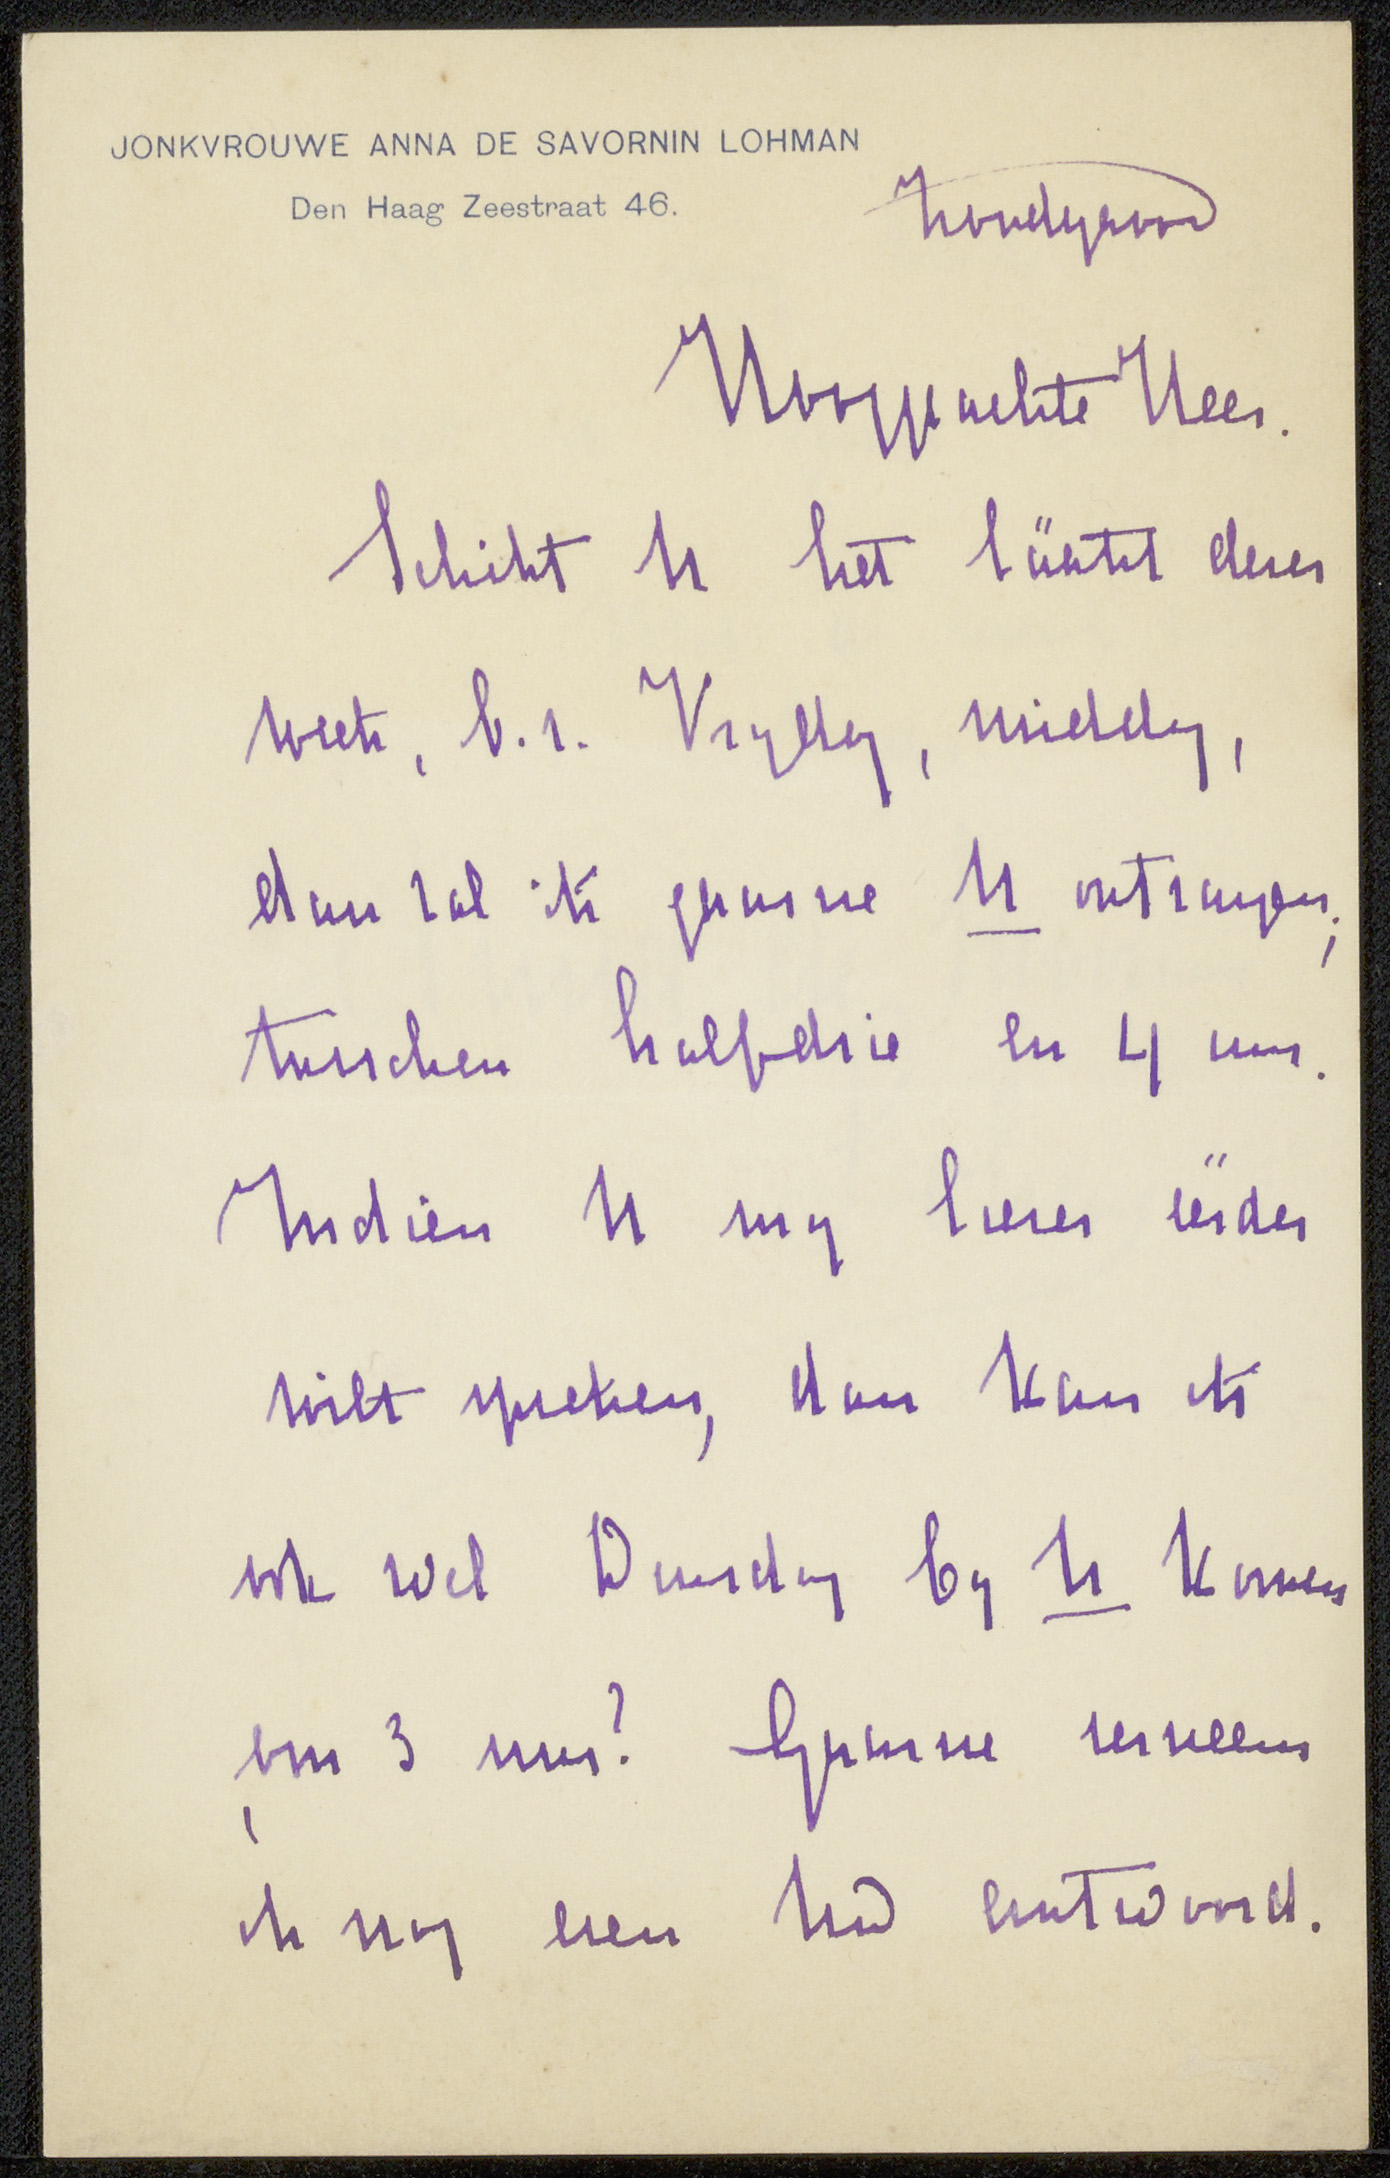 JONKVROUWE ANNA DE SAVORNIN LOHMAN
Den Haag Zeestraat 46.
Zondagavond
Hooggeachte Heer.
Schikt U het láátst dezer
week, b.v. Vrydag, middag,
dan zal ik gaarne U ontvangen;
tusschen half-drie en 4 uur.
Indien U my liever eérder
wilt spreken, dan kan ik
ook wel Dinsdag by U komen
om 3 uur? Gaarne verneem
ik nog even Uw antwoord.